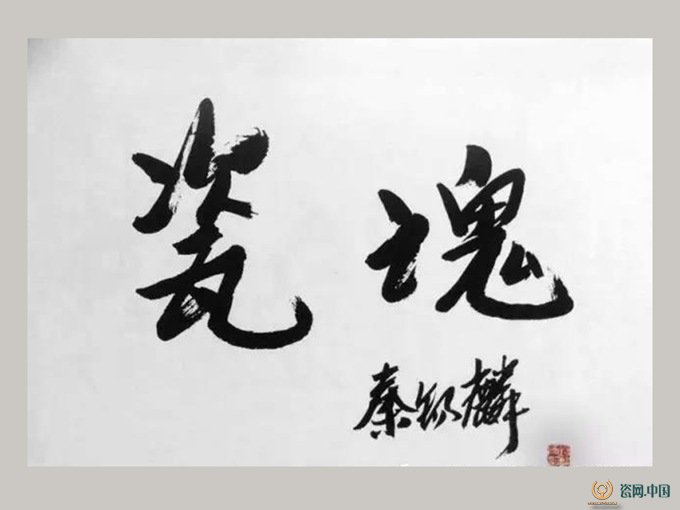 瓷 魂
秦锡麟
瓷网.中国